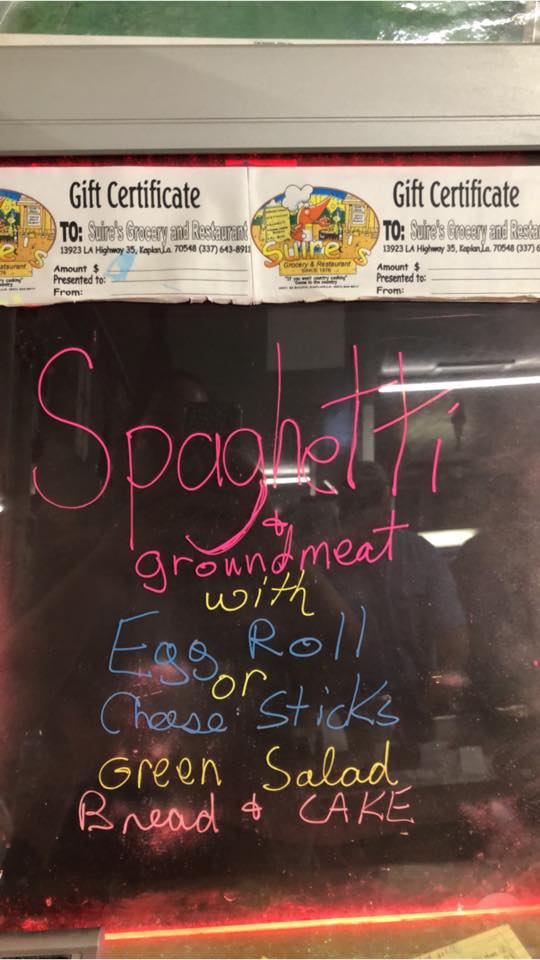 Gift Certificate
TO: Suire's Grocery and Restaurant
13923 LA Highway 35, Kaplan, La. 70548 (337) 643-8911
Amount $
Presented to:
From:
Suire's
Grocery & Restaurant
SINCE 1976
Gift Certificate
TO: Suire's Grocery and Resta
13923 LA Highway 35, Kaplan, La. 70548 (337) 6
Amount $
Presented to:
From:
Spaghetti
&
groundmeat
with
Egg Roll
or
Cheese Sticks
Green Salad
Bread & CAKE